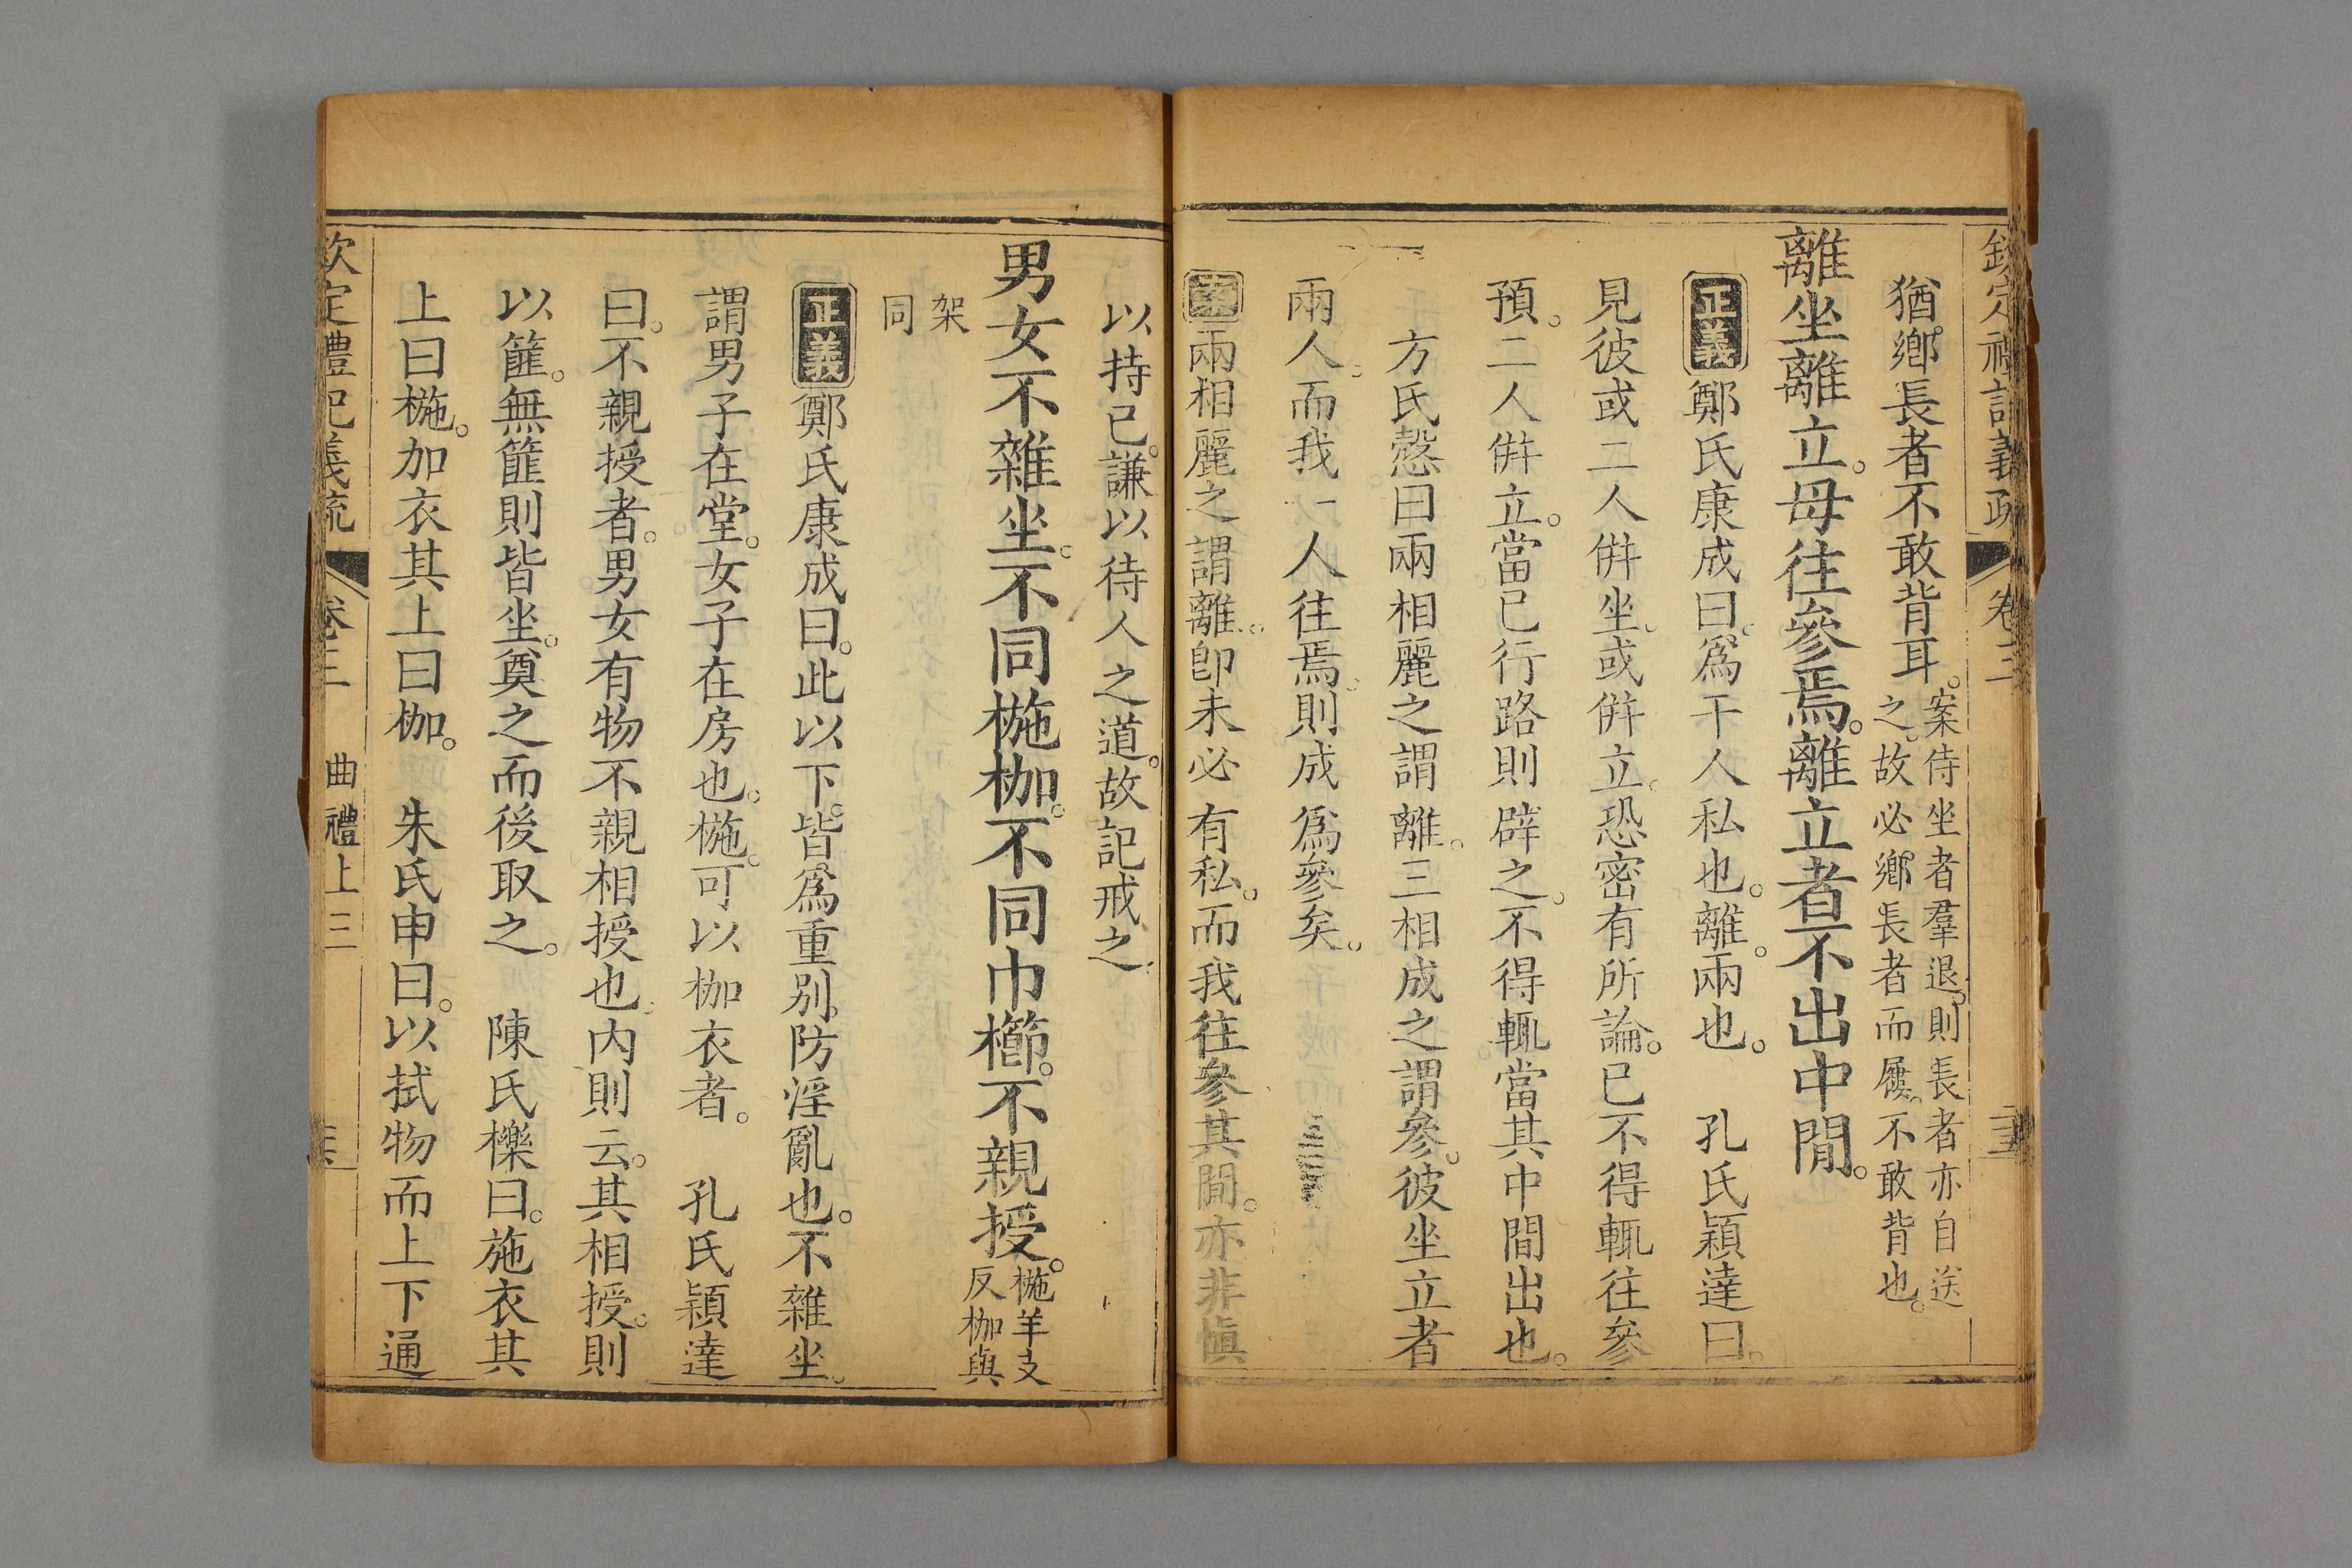 欽定禮記義疏 卷三
猶鄉長者不敢背耳。案侍坐者羣退。則長者亦自送
之。故必鄉長者而屨。不敢背也。
離坐離立。毋往參焉。離立者不出中閒。
正義 鄭氏康成曰。爲干人私也。離。兩也。 孔氏穎達曰。
見彼或二人倂坐。或倂立。恐密有所論。已不得輒往參
預。二人倂立。當已行路則辟之。不得輒當其中間出也。
方氏慤曰兩相麗之謂離。三相成之謂參。彼坐立者
兩人。而我以一人往焉。則成爲參矣。
案 兩相麗之謂離。卽未必有私。而我往參其間。亦非愼
以持已。謙以待人之道。故記戒之
男女不雜坐。不同椸枷。不同巾櫛。不親授。椸羊支
反枷與
架
同
正義 鄭氏康成曰。此以下。皆爲重別。防淫亂也。不雜坐。
謂男子在堂。女子在房也。椸。可以枷衣者。 孔氏穎達
曰。不親授者。男女有物不親相授也。内則云。其相授。則
以篚。無篚則皆坐。奠之而後取之。 陳氏櫟曰。施衣其
上曰椸。加衣其上曰枷。 朱氏申曰。以拭物而上下通
欽定禮記義疏 卷三 曲禮上三